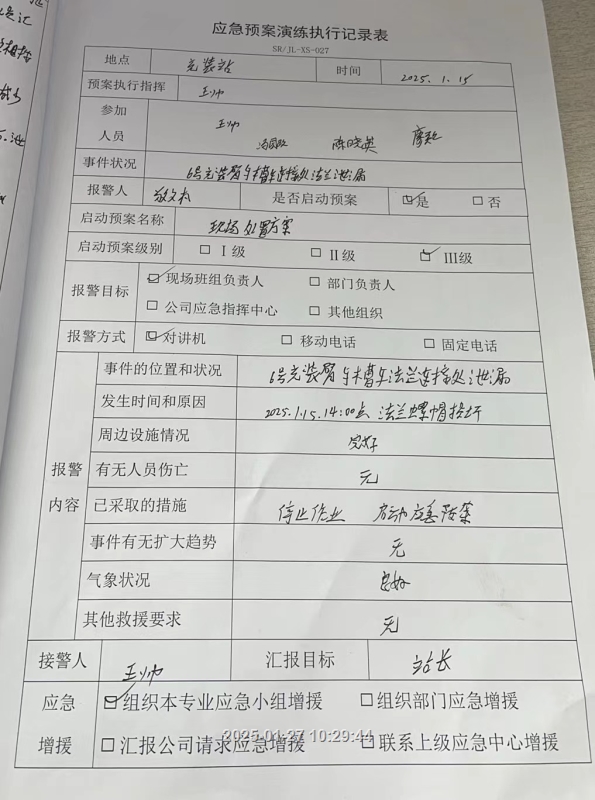 应急预案演练执行记录表
SR/JL-XS-027
地点 充装站 时间 2025.1.15
预案执行指挥 王帅
参加人员 王帅 陈晓英
事件状况 6号充装臂与槽车连接处法兰泄漏
报警人 是否启动预案 ☑是 □否
启动预案名称 现场处置方案
启动预案级别 □Ⅰ级 □Ⅱ级 ☑Ⅲ级
报警目标 ☑现场班组负责人 □部门负责人
□公司应急指挥中心 □其他组织
报警方式 ☑对讲机 □移动电话 □固定电话
报警内容
事件的位置和状况 6号充装臂与槽车法兰连接处泄漏
发生时间和原因 2025.1.15.14:00点 法兰螺帽损坏
周边设施情况 完好
有无人员伤亡 无
已采取的措施 停止作业 启动应急预案
事件有无扩大趋势 无
气象状况 良好
其他救援要求 无
接警人 王帅 汇报目标 站长
应急增援 ☑组织本专业应急小组增援 □组织部门应急增援
□汇报公司请求应急增援 □联系上级应急中心增援
2025-01-27 10:29:44